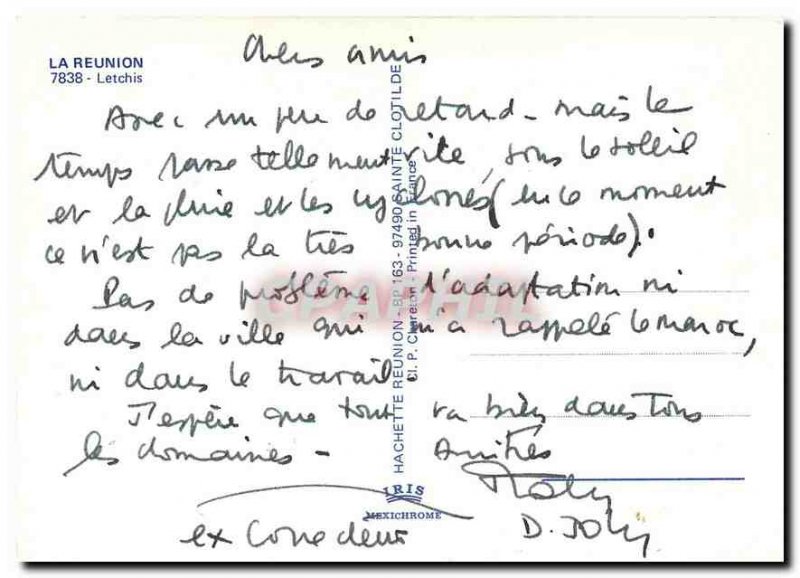 LA REUNION
7838 - Letchis
Chers amis
Avec un peu de retard - mais le
temps passe tellement vite, sous le soleil
et la pluie et les cyclones (en ce moment
ce n'est pas la très bonne période).
Pas de problème d'adaptation ni
dans la ville qui m'a rappelé le maroc,
ni dans le travail.
J'espère que tout va bien dans tous
les domaines - Amitiés
D. Joly
ex
HACHETTE REUNION - BP 163 - 97490 SAINTE CLOTILDE
Cl. P. Chareton - Printed in France
IRIS
MEXICHROME
CPAPHIL